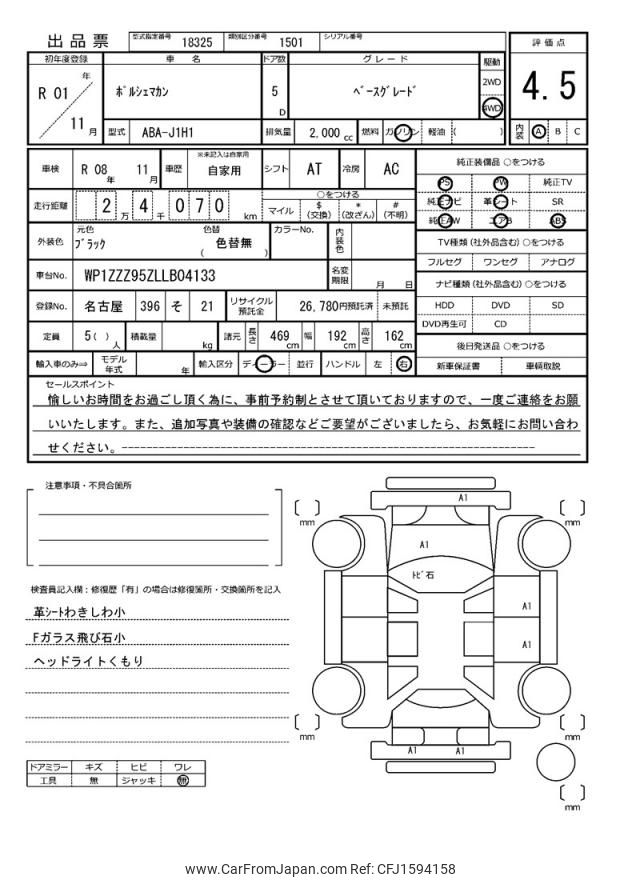 出品票
型式指定番号 18325 類別区分番号 1501 シリアル番号
評価点
4.5
内装 A B C
初年度登録 車名 ドア数 グレード 駆動
R 01 年 11 月
ポルシェマカン
5 D
ベースグレード
2WD
4WD
型式 ABA-J1H1 排気量 2,000 cc 燃料 ガソリン 軽油 ( )
車検 R 08 年 11 月 車歴 ※未記入は自家用 自家用 シフト AT 冷房 AC
走行距離 2 万 4 千 0 7 0 km
○をつける
マイル $(交換) *(改ざん) #(不明)
外装色 元色 ブラック 色替 ( 色替無 ) カラーNo. 内装色
車台No. WP1ZZZ95ZLLB04133 名変期限 月 日
登録No. 名古屋 396 そ 21 リサイクル預託金 26,780円預託済 未預託
定員 5( )人 積載量 kg 諸元 長さ 469 cm 幅 192 cm 高さ 162 cm
輸入車のみ⇒ モデル年式 年 輸入区分 ディーラー 並行 ハンドル 左 右
純正装備品 ○をつける
PS PW 純正TV
純正ナビ 革シート SR
純正AW エアB ABS
TV種類 (社外品含む) ○をつける
フルセグ ワンセグ アナログ
ナビ種類 (社外品含む) ○をつける
HDD DVD SD
DVD再生可 CD
後日発送品 ○をつける
新車保証書 車輌取説
セールスポイント
愉しいお時間をお過ごし頂く為に、事前予約制とさせて頂いておりますので、一度ご連絡をお願
いいたします。また、追加写真や装備の確認などご要望がございましたら、お気軽にお問い合わ
せください。------------------------------------------------------------
注意事項・不具合箇所
検査員記入欄:修復歴「有」の場合は修復箇所・交換箇所を記入
革シートわきしわ小
Fガラス飛び石小
ヘッドライトくもり
ドアミラー キズ ヒビ ワレ
工具 無 ジャッキ 無
A1
mm
mm
A1
トビ石
A1
A1
mm
mm
A1 A1
mm
www.CarFromJapan.com Ref: CFJ1594158